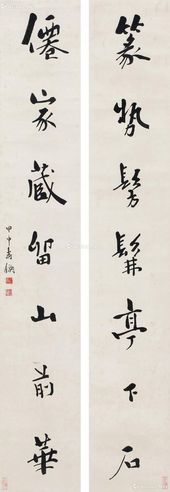 篆勢髣髴亭下石
僊家藏留山前華
甲申壽鉥